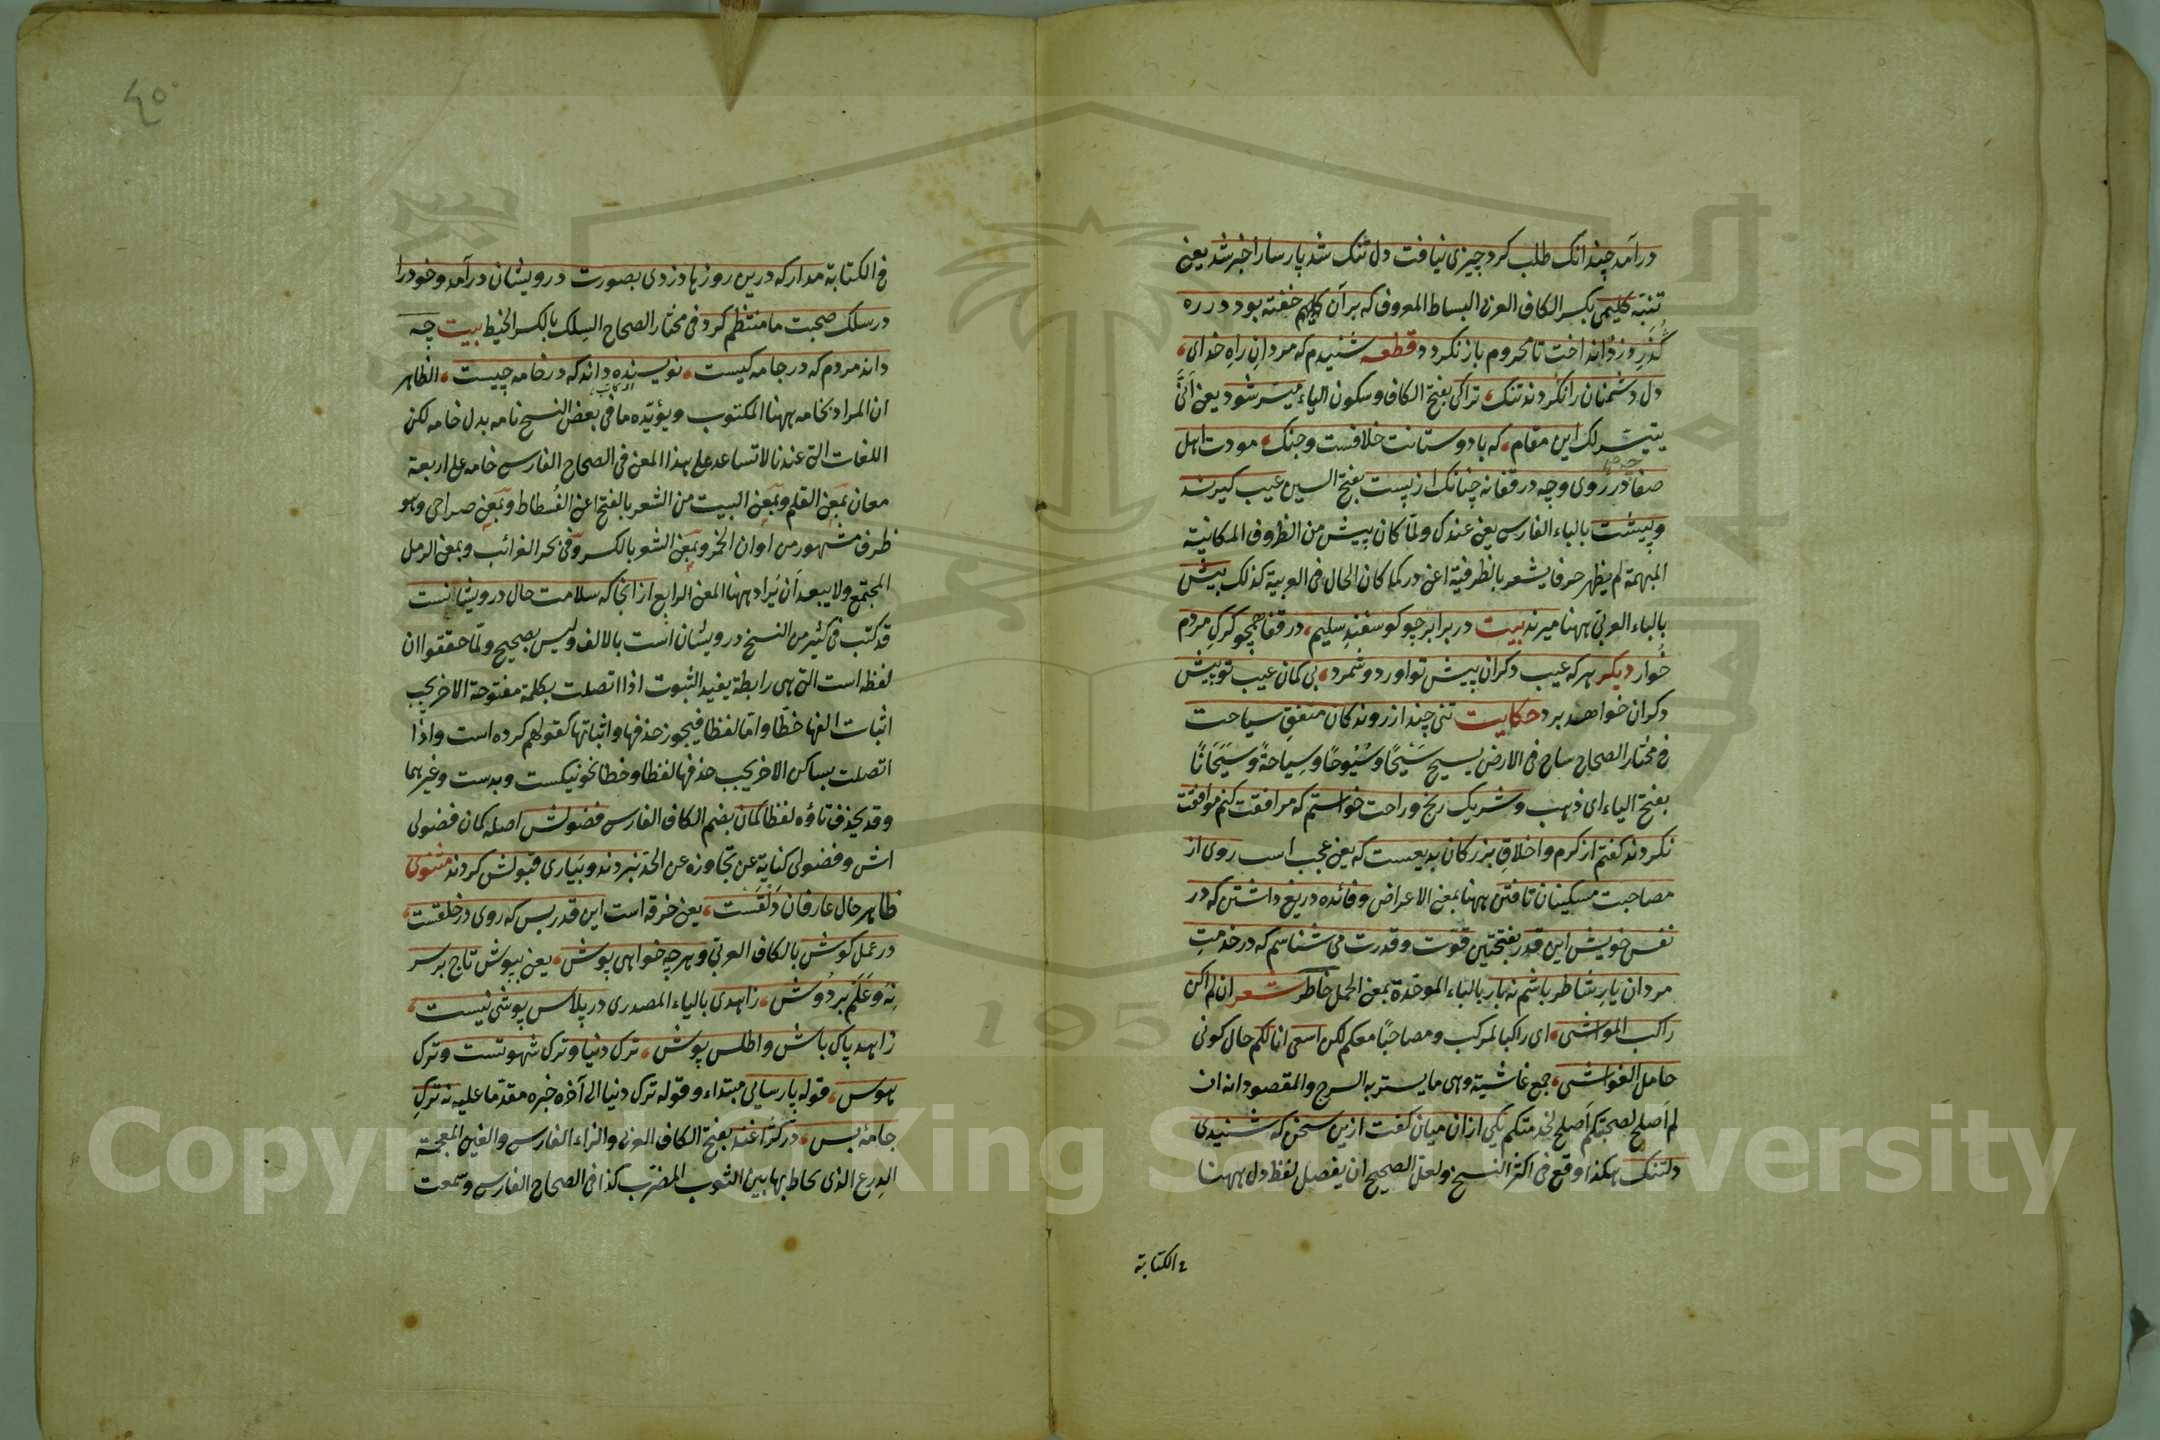 درآمد چندانک طلب کرد چیزی نیافت دل تنک شد پارسارا خبر شد یعنی
تنبّه کلیمی بکسر الکاف العربی البساط المعروف که برآن کلیم خفته بود در ره
کُذَرِ دزد انداخت تا محروم باز نکردد قطعه شنیدم که مردانِ راهِ خدای
دل دشمنان را نکردند تنک تراکَی بفتح الکاف وسکون الیاء میسّر شود یعنی اَنَّی
یتیسّر لک این مقام که با دوستانت خلافست وجنک مودت اهل
صفا در روی وچه در قفا نه چنانک از پست بفتح السین عیب کیرند
وپیشت بالباء الفارسی یعنی عندک ولمّا کان پیش من الظروف المکانیة
المبهمة لم یظهر حرفا یشعر بالظرفیة اعنی در کما کان الحال فی العربیة کذلک بیش
بالباء العربی ههنا میرند بیت در برابر چو کوسفندِ سلیم در قفا همچو کرکِ مردم
خُوار دیکر هرکه عیب دکران پیش تو آورد وشمرد بی کمان عیب تو پیش
دکران خواهد برد حکایت تنی چند از روندکان متفقِ سیاحت
فی مختار الصحاح ساح فی الارض یسیح سَیْحًا وسُیُوحًا وسِیَاحةً وسَیَحَانًا
بفتح الیاء ای ذهب وشریک رنج وراحت خواستم که مرافقت کنم موافقت
نکردند کفتم از کرم واخلاقِ بزرکان بدیعست که یعنی عجب است روی از
مصاحبت مسکینان تافتن ههنا بمعنی الاعراض وفائده دریغ داشتن که در
نفس خویش این قدر بفتحتین قوّت وقدرت می شناسم که در خدمتِ
مردان یارِ شاطر باشم نه بار بالباء الموحّدة بمعنی الحمل خاطر شعر ان لم اکن
راکب المواشی ای راکبا لمرکب ومصاحبًا معکم لکن اسعی انا لکم حال کونی
حامل الغواشی جمع غاشیة وهی ما یستر به السرج والمقصود انه ان
لم اَصلح لصحبتکم اَصلح لخدمتکم یکی از ان میان کفت ازین سخن که شنیدی
دلتنک هکذا وقع فی اکثر النسخ ولعلّ الصحیح ان یفصل لفظ دل ههنا
فی الکتابة
فی الکتابة مدار که درین روزها دزدی بصورت درویشان درآمد وخودرا
در سلک صحبت ما منتظم کرد فی مختار الصحاح السِلک بالکسر الخیط بیت چه
داند مردم که در جامه کیست نویسنده داند که در خامه چیست الظاهر
ان المراد بخامه ههنا المکتوب ویؤیّده ما فی بعض النسخ نامه بدل خامه لکن
اللغات التی عندنا لا تساعد علی هذا المعنی فی الصحاح الفارسی خامه علی اربعة
معان بمعنی القلم وبمعنی البیت من الشعر بالفتح اعنی الفُسطاط وبمعنی صراحی وهو
ظرف مشهور من اوان الخمر وبمعنی الشعر بالکسر وفی بحر الغرائب وبمعنی الرمل
المجتمع ولا یبعد اَن یُراد ههنا المعنی الرابع از انجا که سلامت حال درویشانست
قد کتب فی کثیر من النسخ درویشان است بالالف ولیس بصحیح ولمّا حققوا ان
لفظه است التی هی رابطة یفید الثبوت اذا اتصلت بکلمة مفتوحة الاخر یجب
اثبات الفها خطّا وامّا لفظا فیجوز حذفها واثباتها کقولهم کرده است واذا
اتصلت بساکن الاخر یجب حذفها لفظا وخطا نحو نیکست وبدست وغیرهما
وقد یحذف تاؤه لفظا کمان بضم الکاف الفارسی فضولش اصله کمان فضولی
اش وفضولی کنایة عن تجاوزه عن الحدّ نبردند وبیاری قبولش کردند مثنوی
ظاهرِ حال عارفان دَلَقَست یعنی خرقه است این قدر بس که روی در خلقست
در عمل کوش بالکاف العربی وهرچه خواهی پوش یعنی بپوش تاج بر سر
نِه وعَلَم بر دُوش زاهدی بالیاء المصدری در پلاس پوشی نیست
زاهدِ پاک باش واطلس پوش ترک دنیا وترک شهوتست وترک
هوس قوله پارسایی مبتداء وقوله ترک دنیا الی آخره خبره مقدّما علیه نه ترکِ
جامهٔ بس در کژاغند بفتح الکاف العربی والزاء الفارسی والغین المعجمة
الدِرع الذی یحاط بها بین الثوب المضرّب کذا فی الصحاح الفارسی وسمعت
Copyright © King Saud University
195